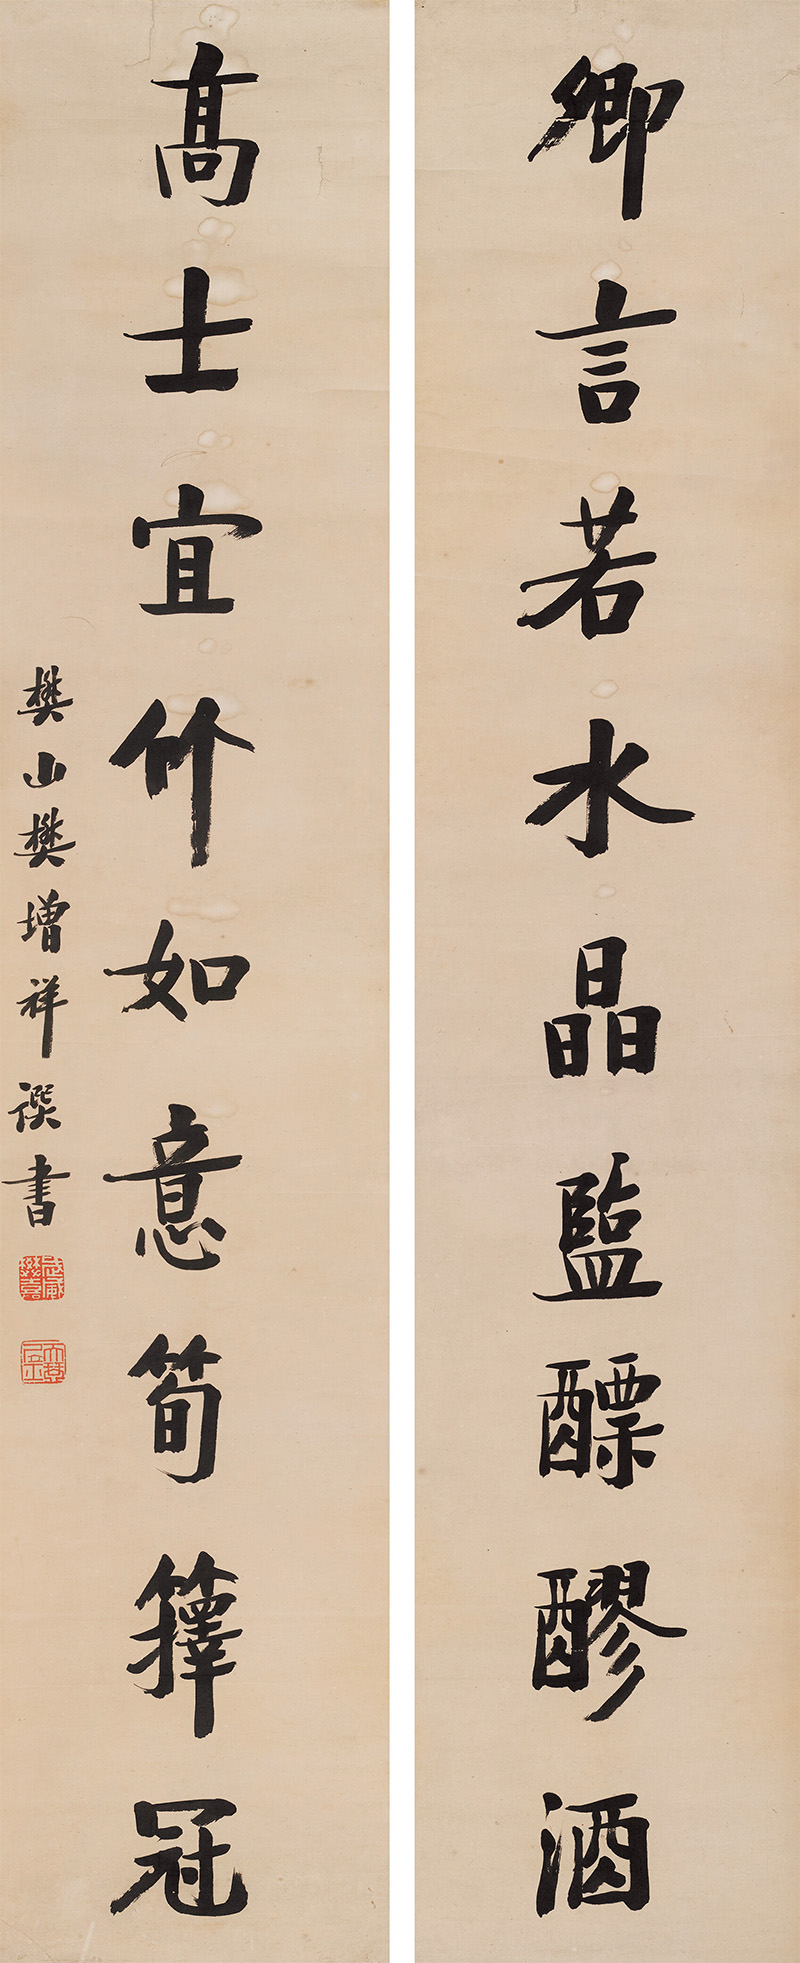 卿言若水晶鹽醥醪酒
髙士宜竹如意筍籜冠
樊山樊增祥譔書